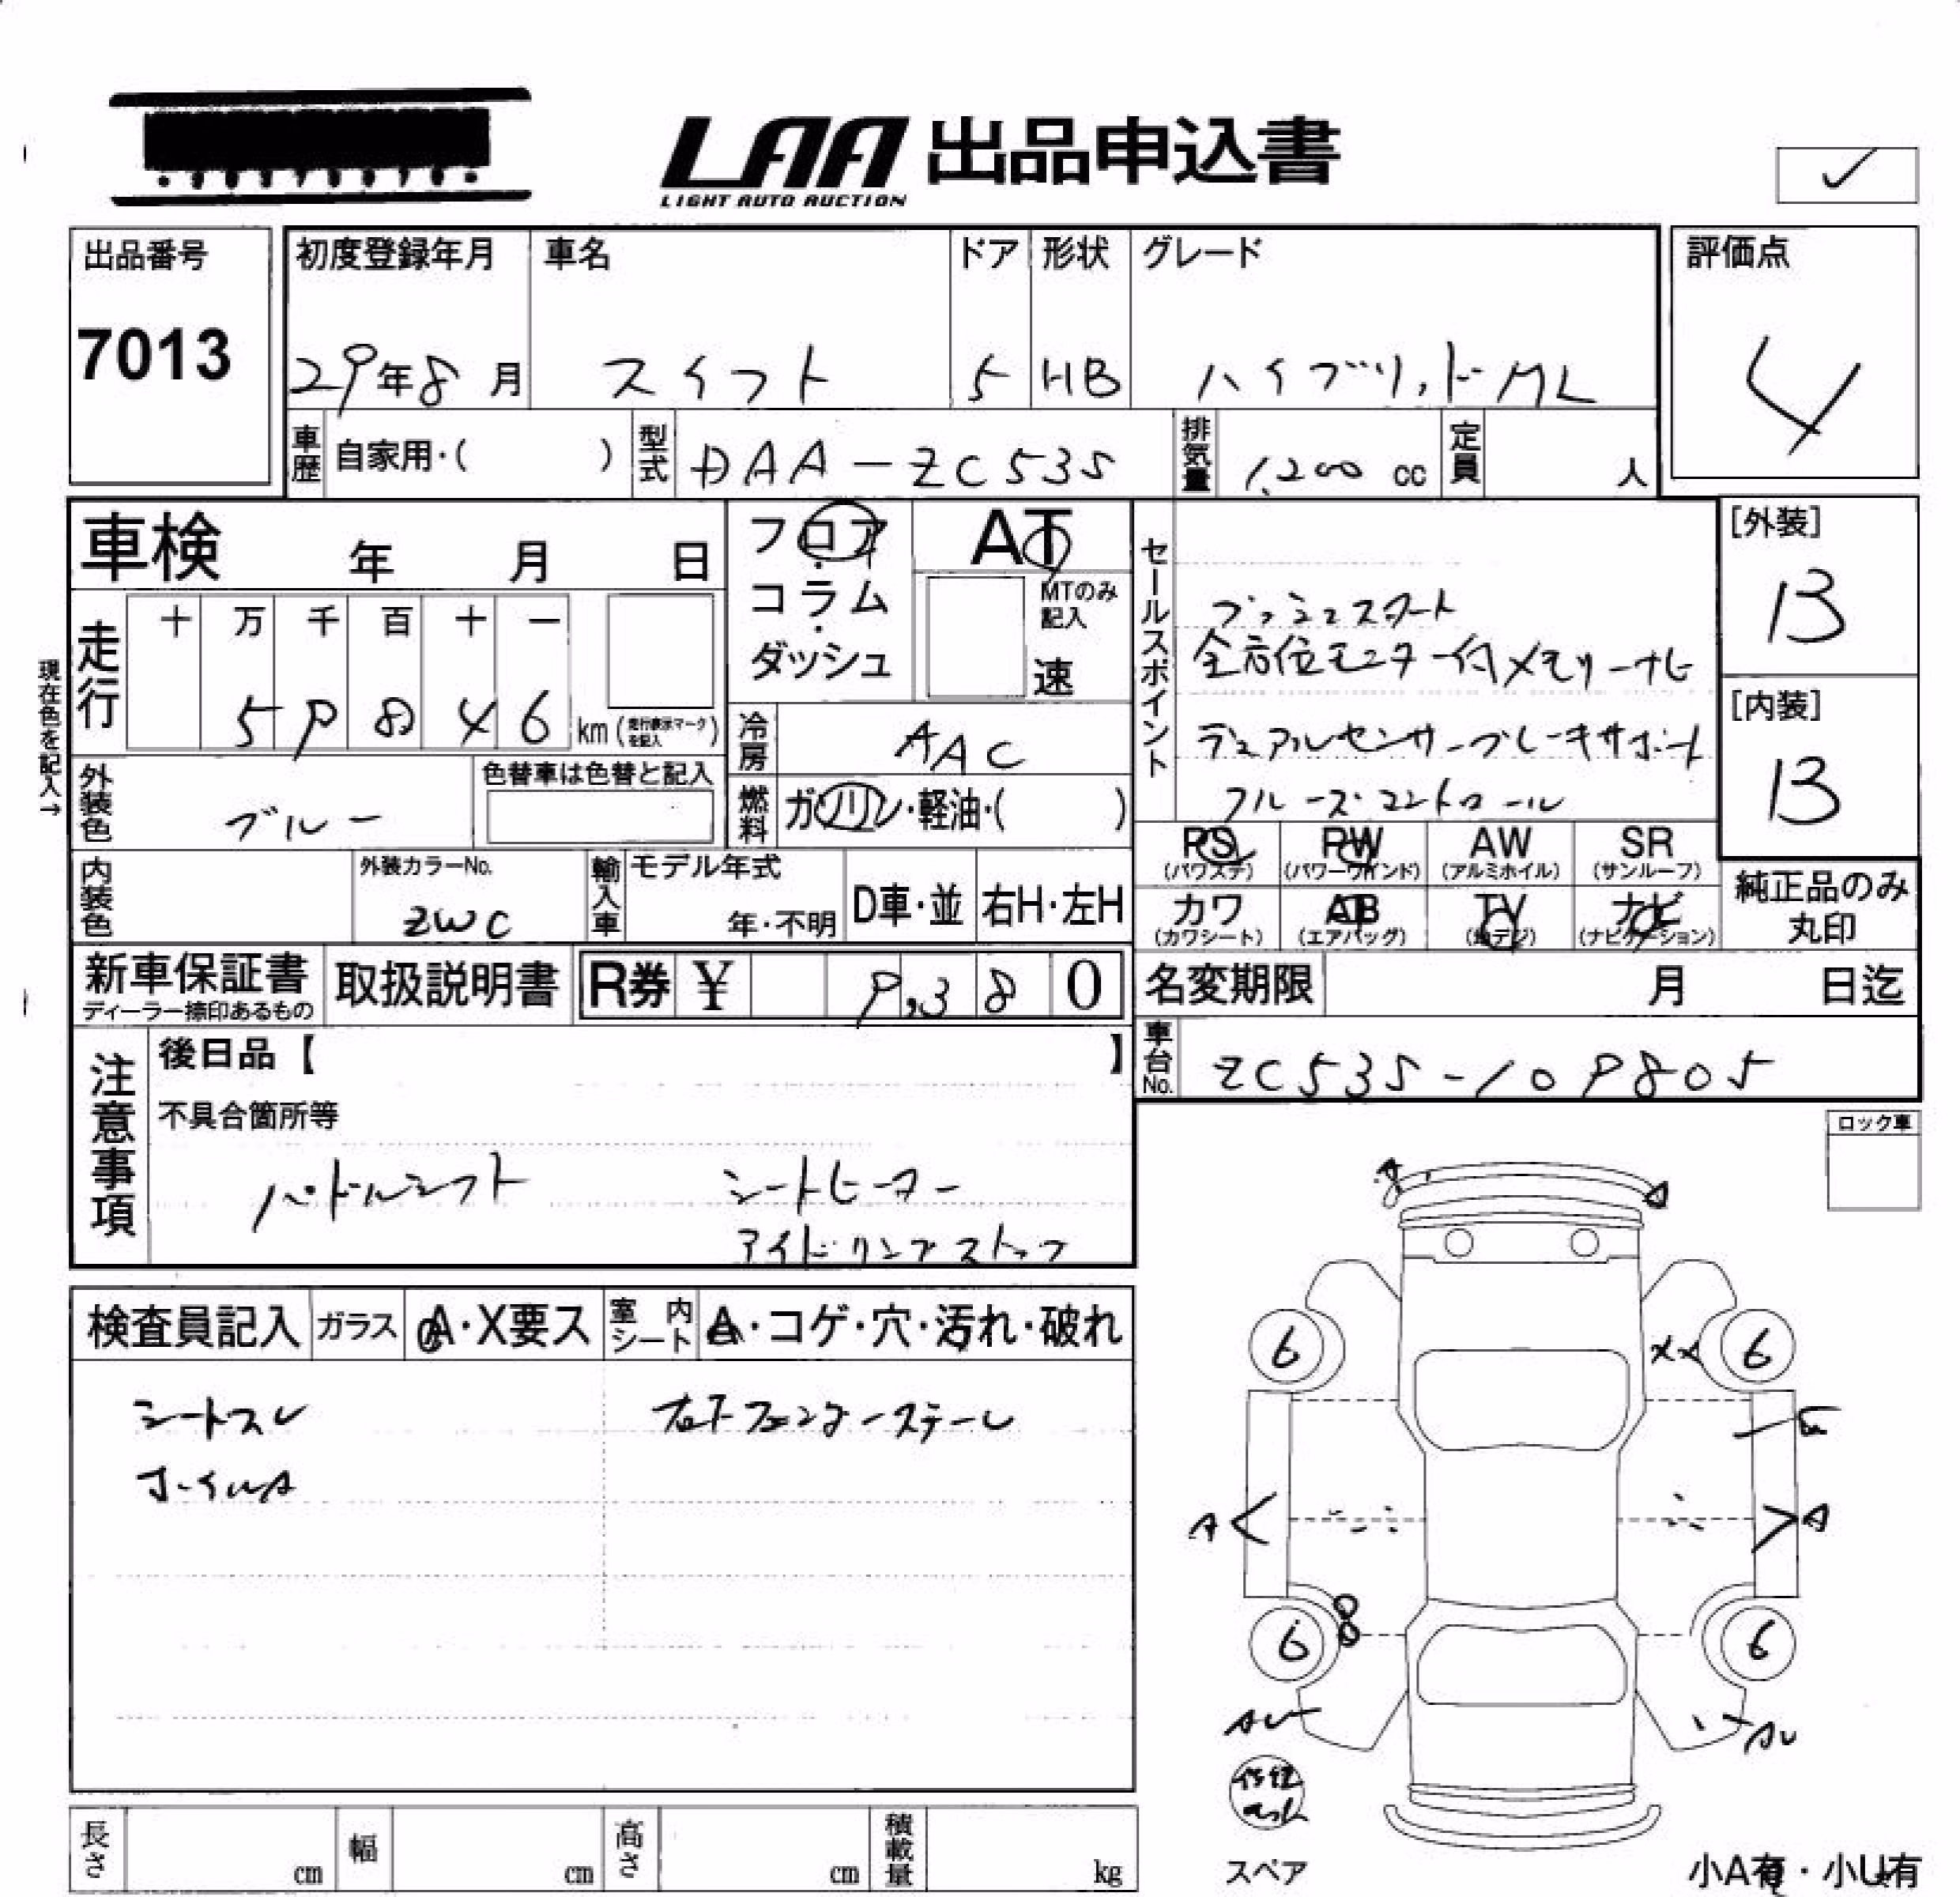 LAA 出品申込書
LIGHT AUTO AUCTION
✓
出品番号
7013
初度登録年月
29年8月
車名
スイフト
ドア
5
形状
HB
グレード
ハイブリッドML
評価点
4
車歴
自家用・( )
型式
DAA-ZC53S
排気量
1,200 cc
定員
人
車検 年 月 日
フロア
コラム
ダッシュ
AT
MTのみ
記入
速
セールスポイント
プッシュスタート
全方位モニター付メモリーナビ
デュアルセンサーブレーキサポート
クルーズコントロール
[外装]
B
[内装]
B
現在色を記入→
走行
十 万 千 百 十 一
5 9 8 4 6 km (走行表示マークを記入)
冷房
AAC
外装色
ブルー
色替車は色替と記入
燃料
ガソリン・軽油・( )
PS
(パワステ)
PW
(パワーウインド)
AW
(アルミホイル)
SR
(サンルーフ)
内装色
外装カラーNo.
ZWC
輸入車
モデル年式
年・不明
D車・並
右H・左H
カワ
(カワシート)
AB
(エアバッグ)
TV
(地デジ)
ナビ
(ナビゲーション)
純正品のみ
丸印
新車保証書
ディーラー捺印あるもの
取扱説明書
R券 ¥ 9,380
名変期限 月 日迄
車台No.
ZC53S-109805
注意事項
後日品【 】
不具合箇所等
パドルシフト シートヒーター
アイドリングストップ
ロック車
検査員記入
ガラス
A・X要ス
室内シート
A・コゲ・穴・汚れ・破れ
シートスレ
ホイルA
右Fフェンダーステーレ
A
6
6
××
A
A
6
6
AU
AU
スペア
小A有・小U有
長さ cm
幅 cm
高さ cm
積載量 kg